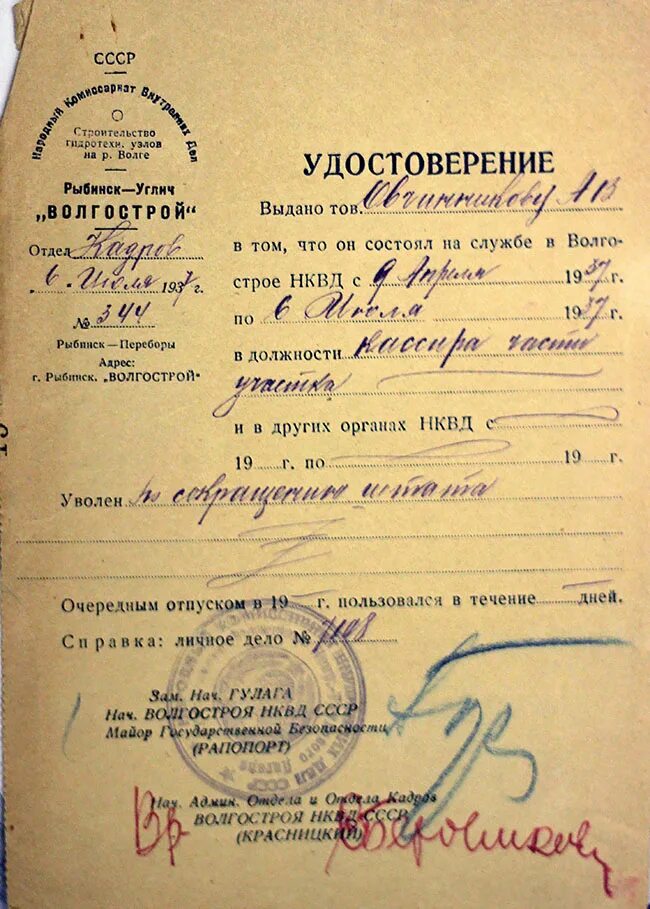 СССР
Народный Комиссариат Внутренних Дел
Строительство
гидротехн. узлов
на р. Волге
Рыбинск—Углич
„ВОЛГОСТРОЙ“
Отдел Кадров
„ 6 „ Июля 1937 г.
№ 344
Рыбинск—Переборы
Адрес:
г. Рыбинск. „ВОЛГОСТРОЙ“
УДОСТОВЕРЕНИЕ
Выдано тов. Овчинникову А В
в том, что он состоял на службе в Волго-
строе НКВД с 9 Апреля 1937 г.
по 6 Июля 1937 г.
в должности кассира части
участка
и в других органах НКВД с
19 г. по 19 г.
Уволен по сокращению штата
Очередным отпуском в 19 г. пользовался в течение дней.
Справка: личное дело №
Зам. Нач. ГУЛАГА
Нач. ВОЛГОСТРОЯ НКВД СССР
Майор Государственной Безопасности
(РАПОПОРТ)
Нач. Админ. Отдела и Отдела Кадров
ВОЛГОСТРОЯ НКВД СССР
(КРАСНИЦКИЙ)
Вр